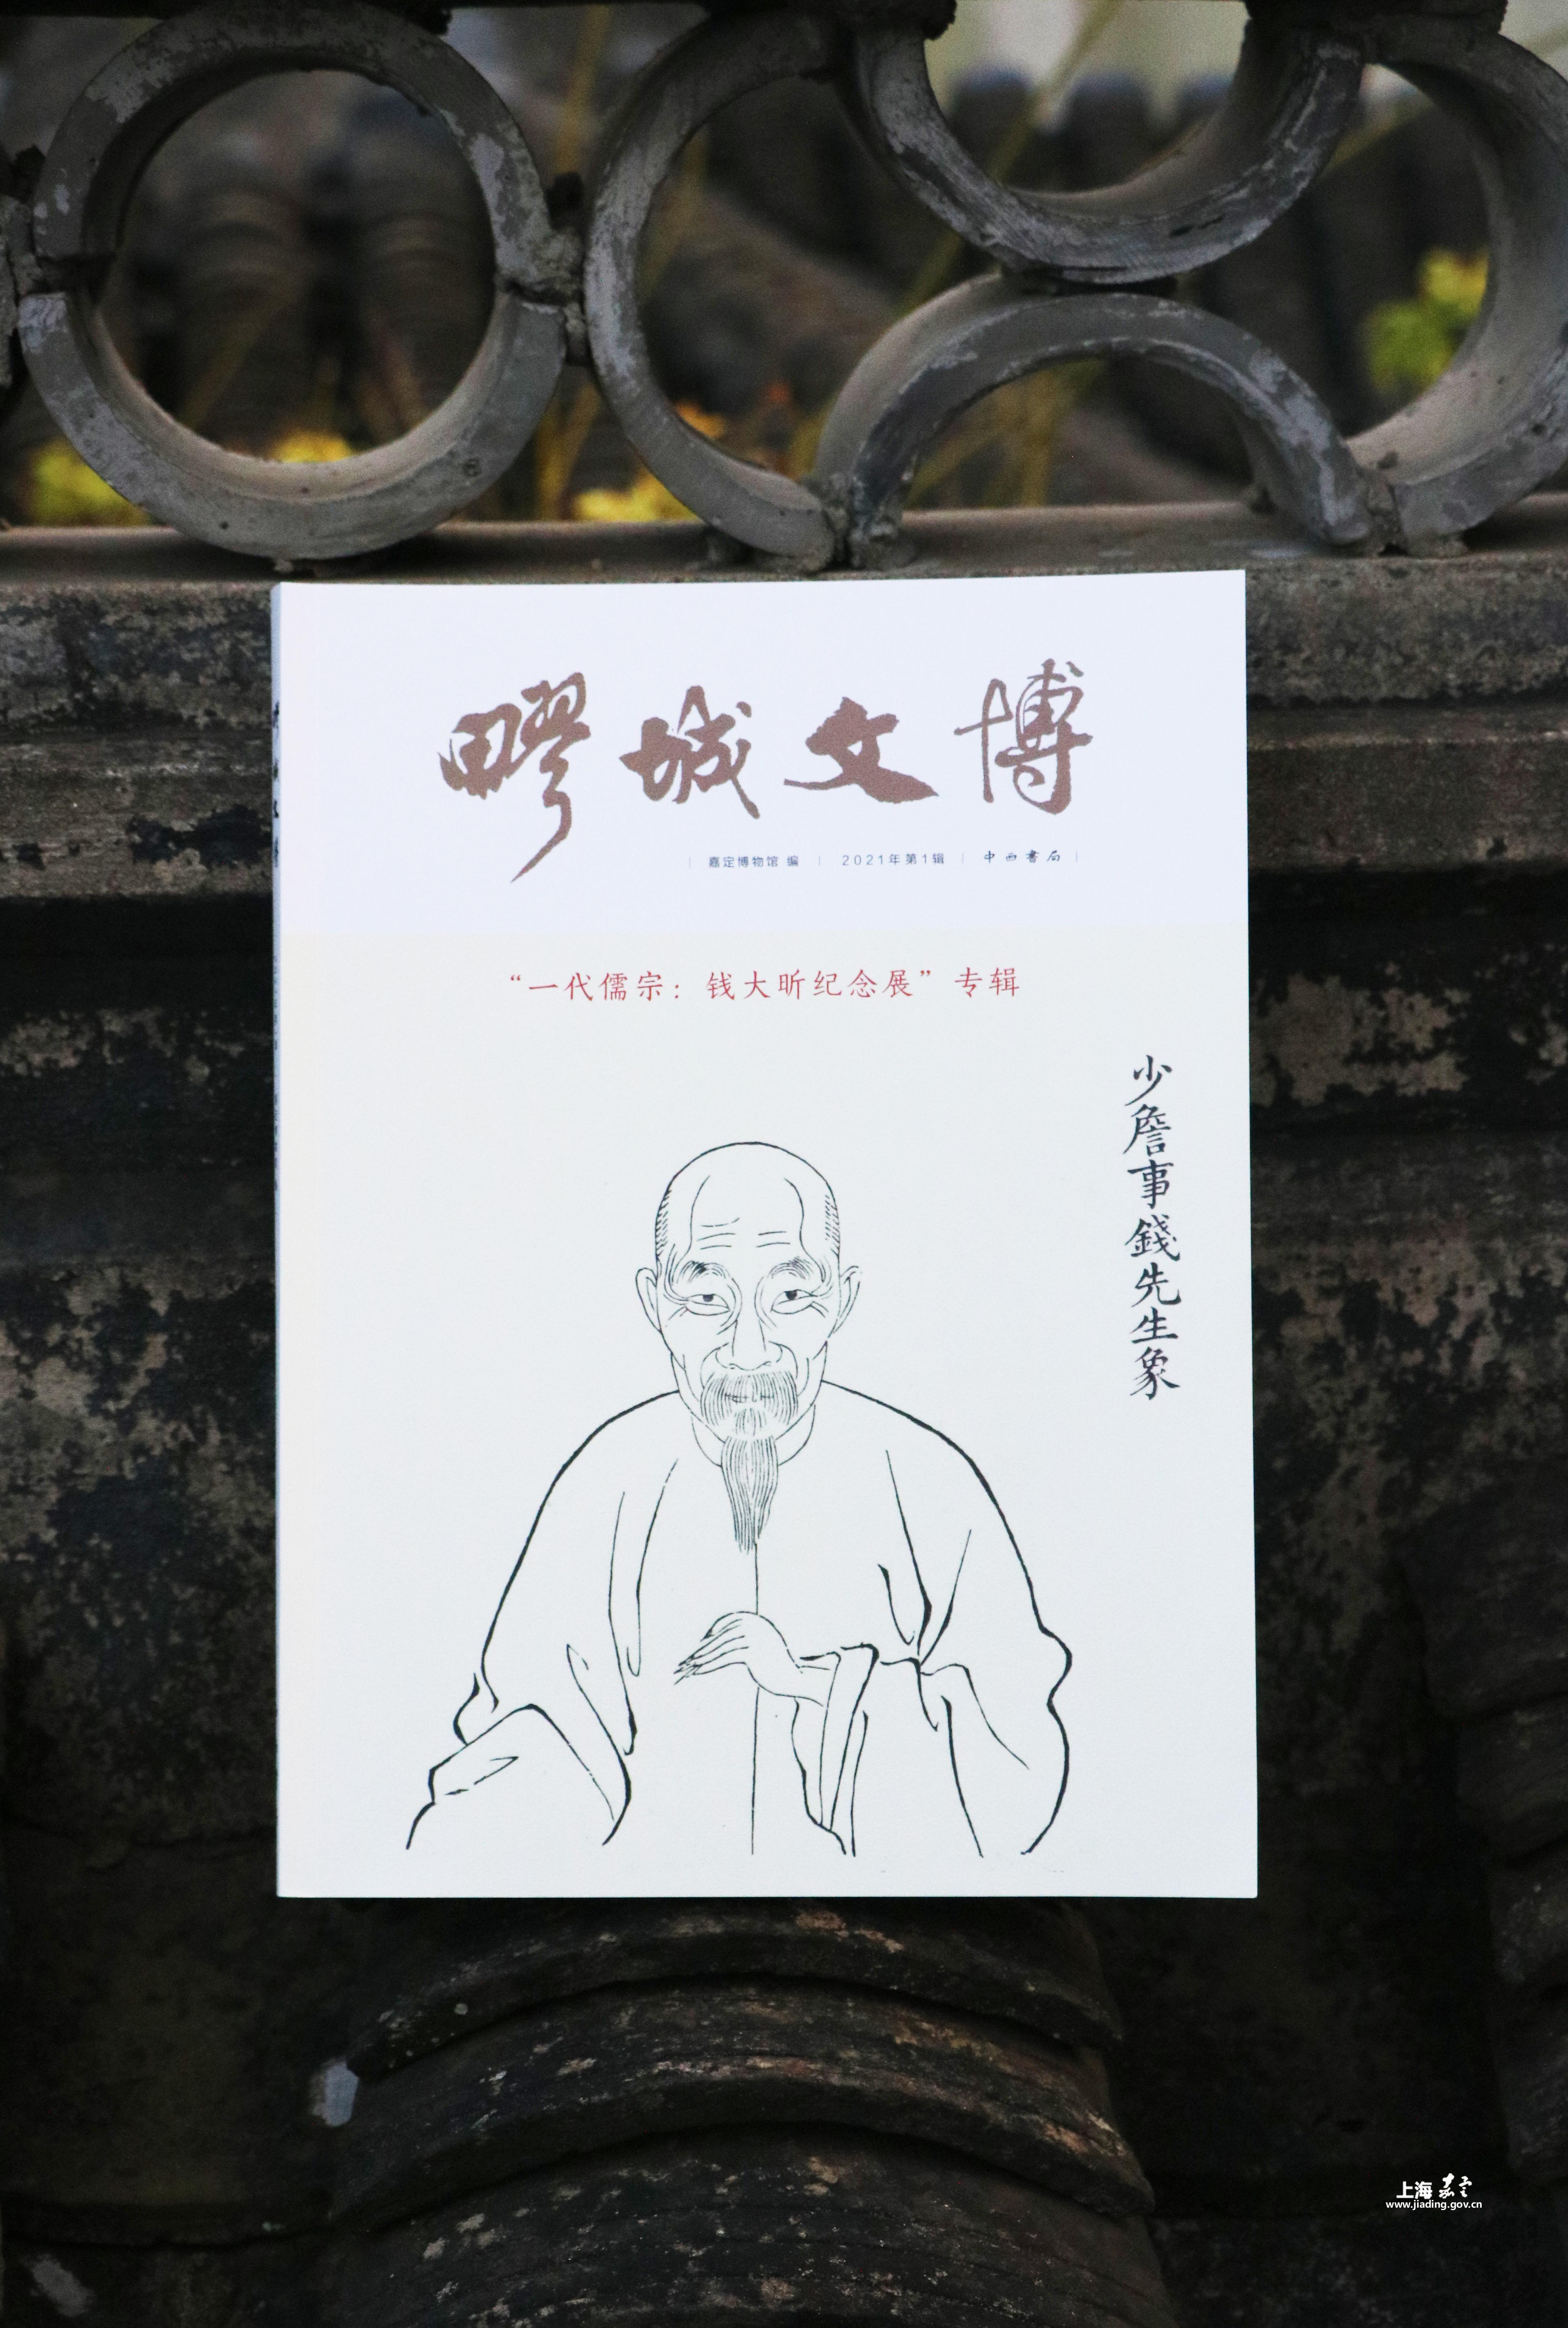 疁城文博
嘉定博物馆 编 | 2021年第1辑 | 中西書局
“一代儒宗：钱大昕纪念展”专辑
少詹事錢先生象
上海嘉定
www.jiading.gov.cn